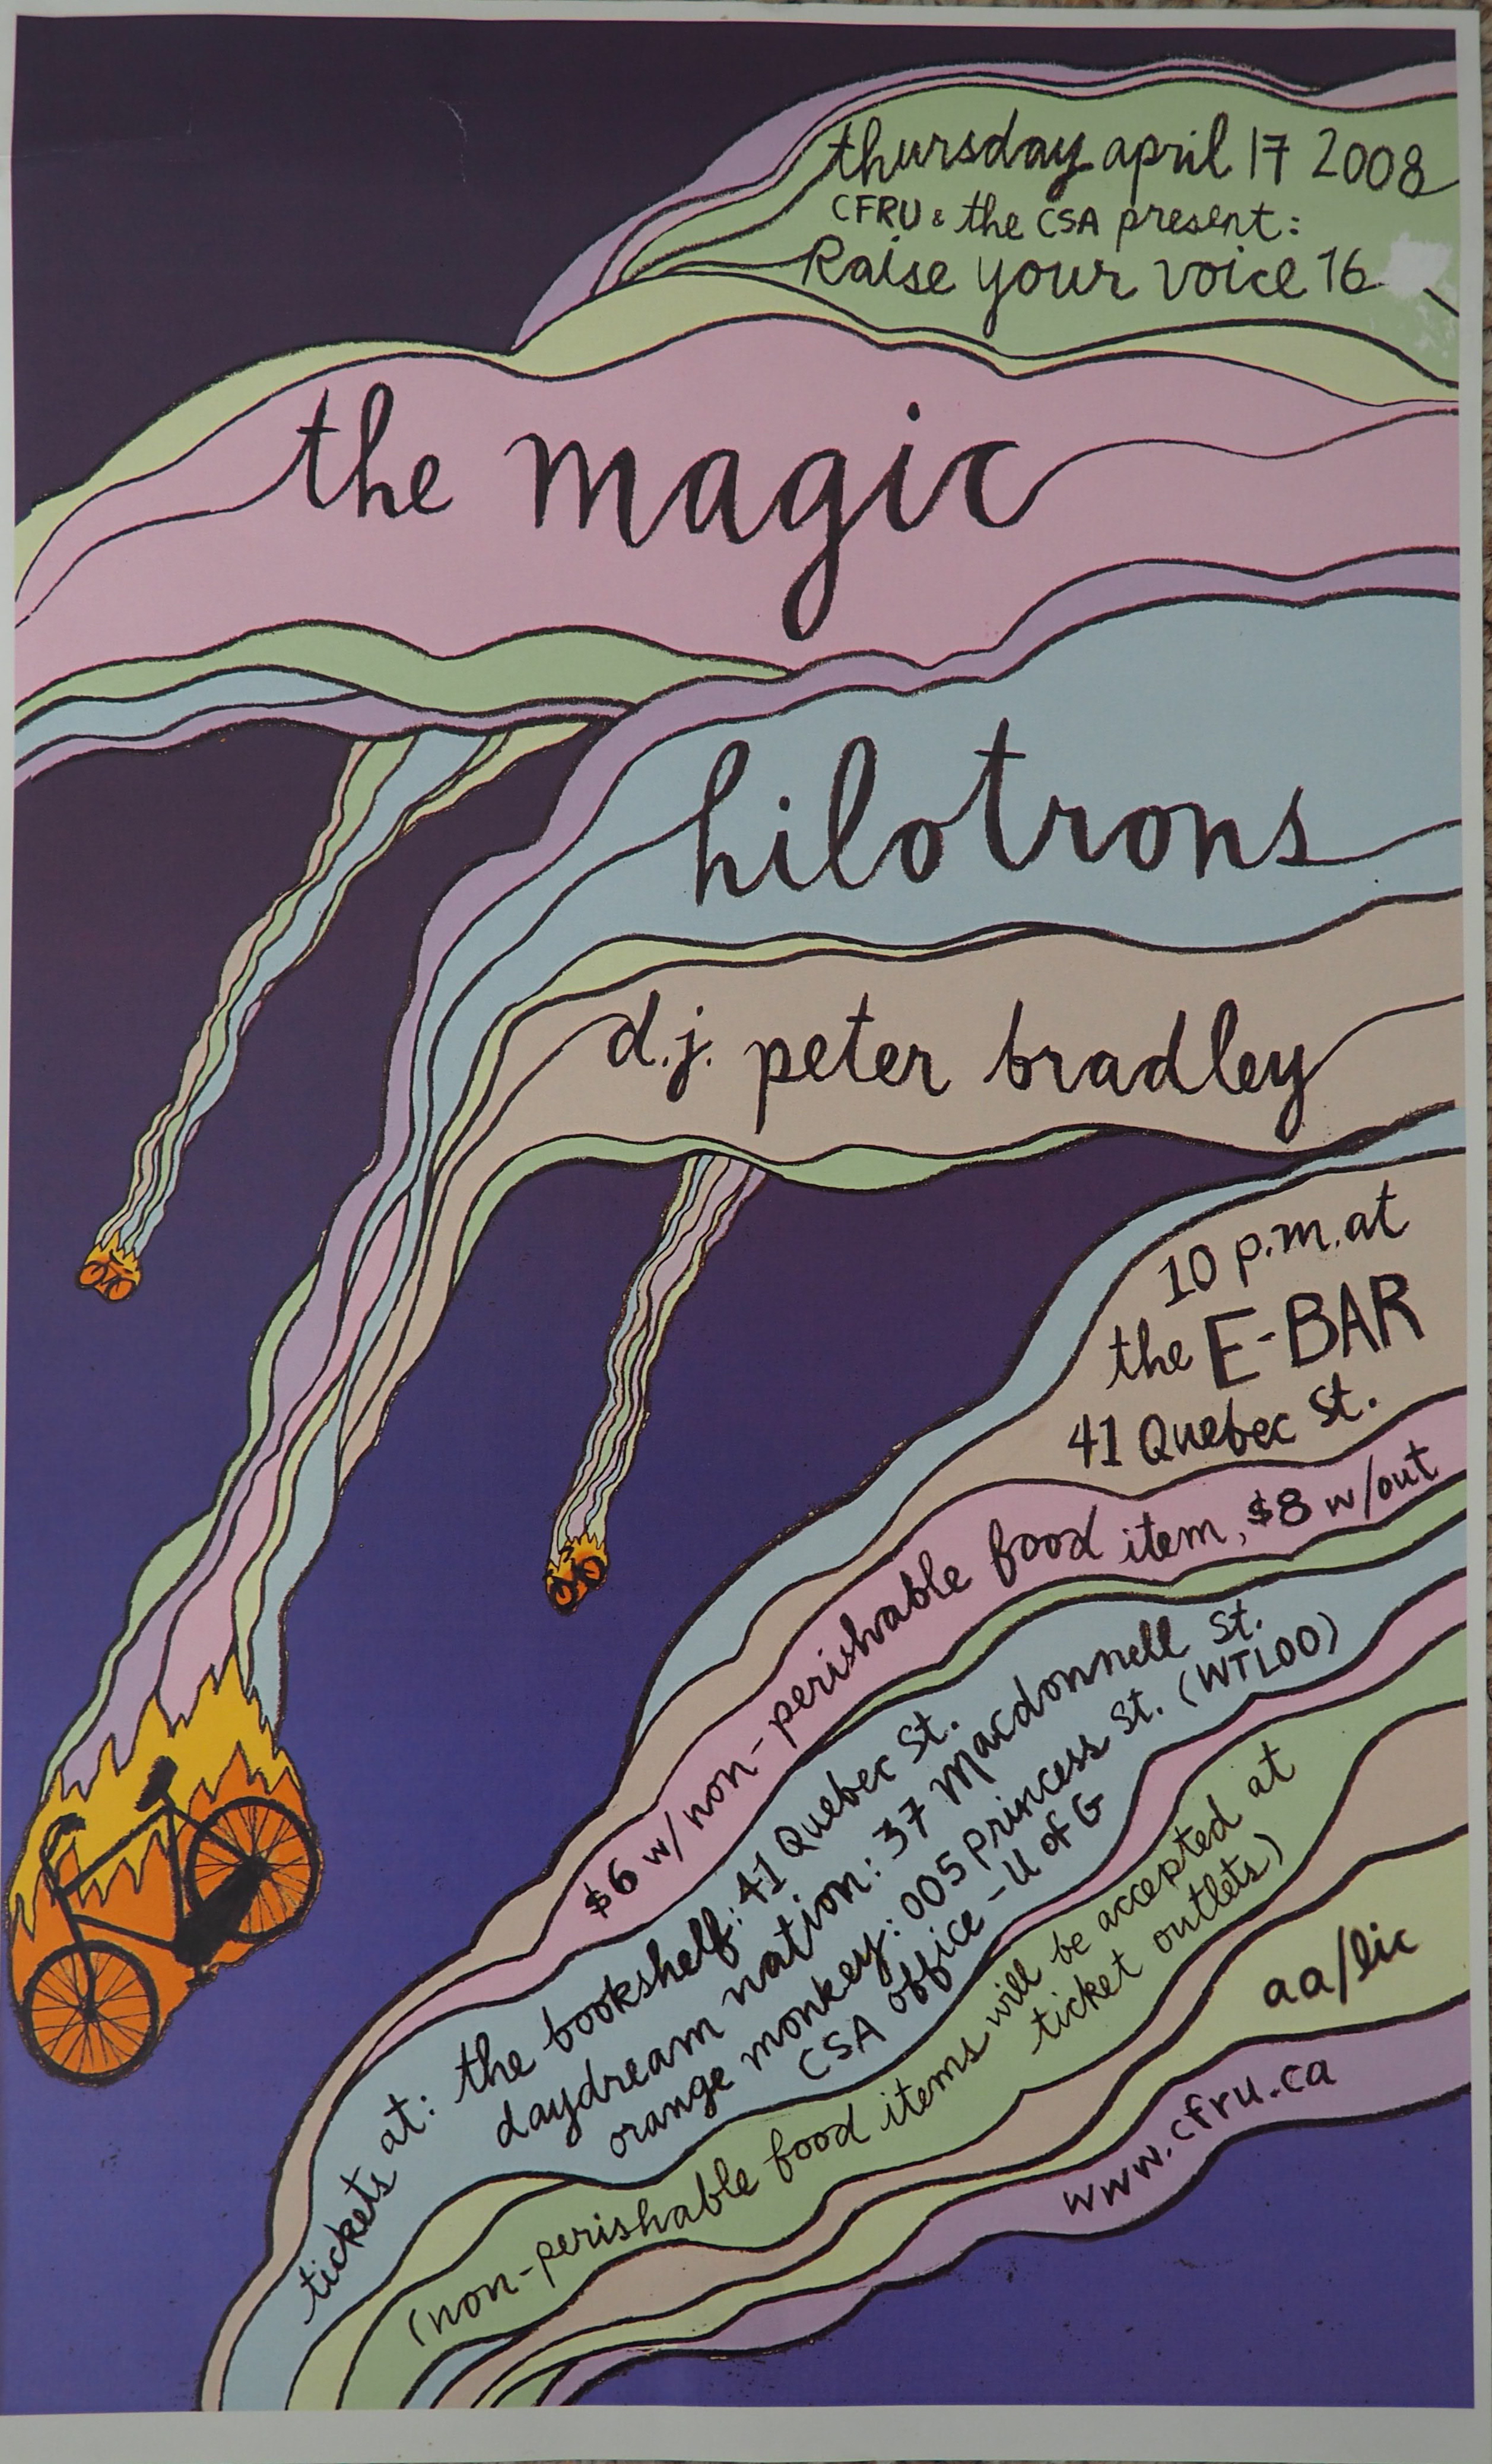 thursday april 17 2008
CFRU & the CSA present:
Raise your voice 16
the magic
hilotrons
d.j. peter bradley
10 p.m. at
the E-BAR
41 Quebec St.
$6 w/non-perishable food item, $8 w/out
tickets at: the bookshelf: 41 Quebec St.
daydream nation: 37 Macdonnell St.
orange monkey: 005 Princess St. (WTLOO)
CSA office - U of G
(non-perishable food items will be accepted at
ticket outlets)
aa/lic
www.cfru.ca